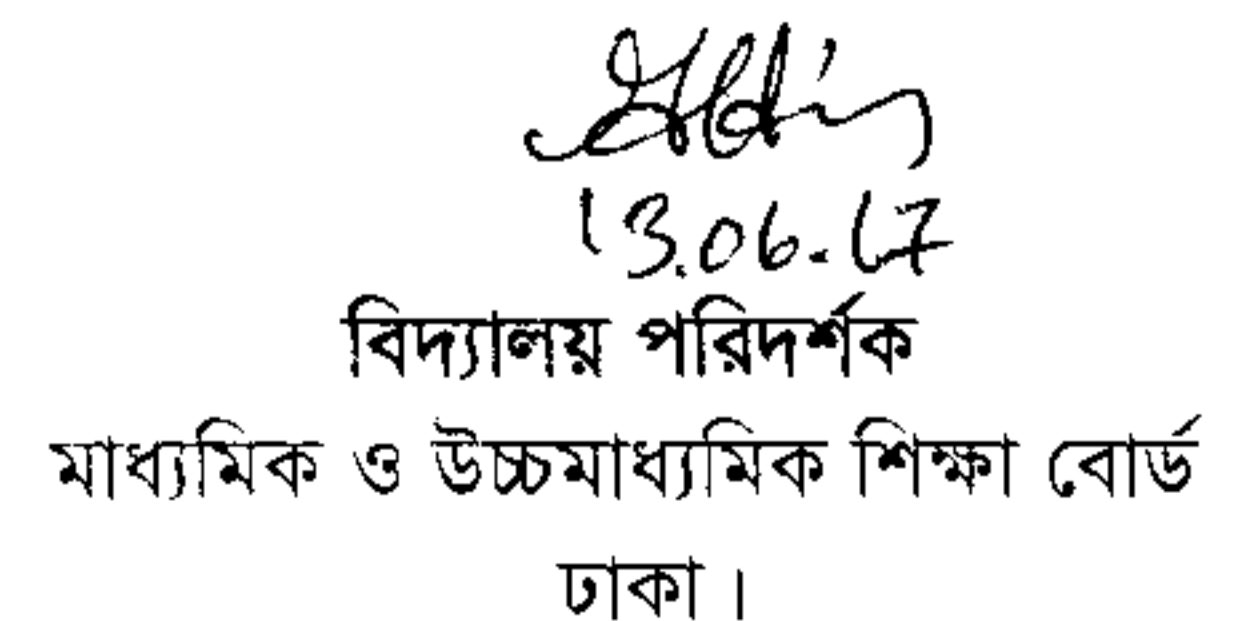 13.06.17
বিদ্যালয় পরিদর্শক
মাধ্যমিক ও উচ্চমাধ্যমিক শিক্ষা বোর্ড
ঢাকা।